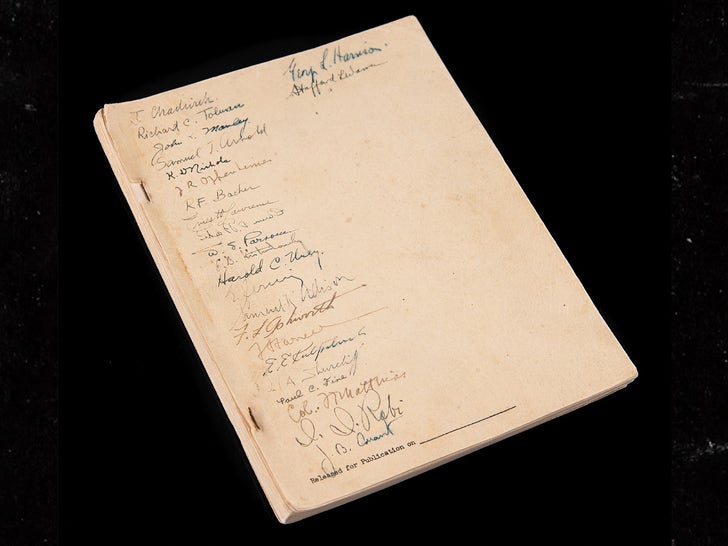 Geo. L. Harrison.
Stafford L Warren
J. Chadwick
Richard C. Tolman
John Manley
Samuel T. Arnold
K. D Nichols
J R Oppenheimer
R.F. Bacher
Lawrence
W. S. Parsons
Harold C. Urey.
E. Fermi
Samuel K Allison
F L Ashworth
E. E. Kirkpatrick
Paul C. Fine
Col. Matthias
I. I. Rabi
J. B. Conant
Released for Publication on